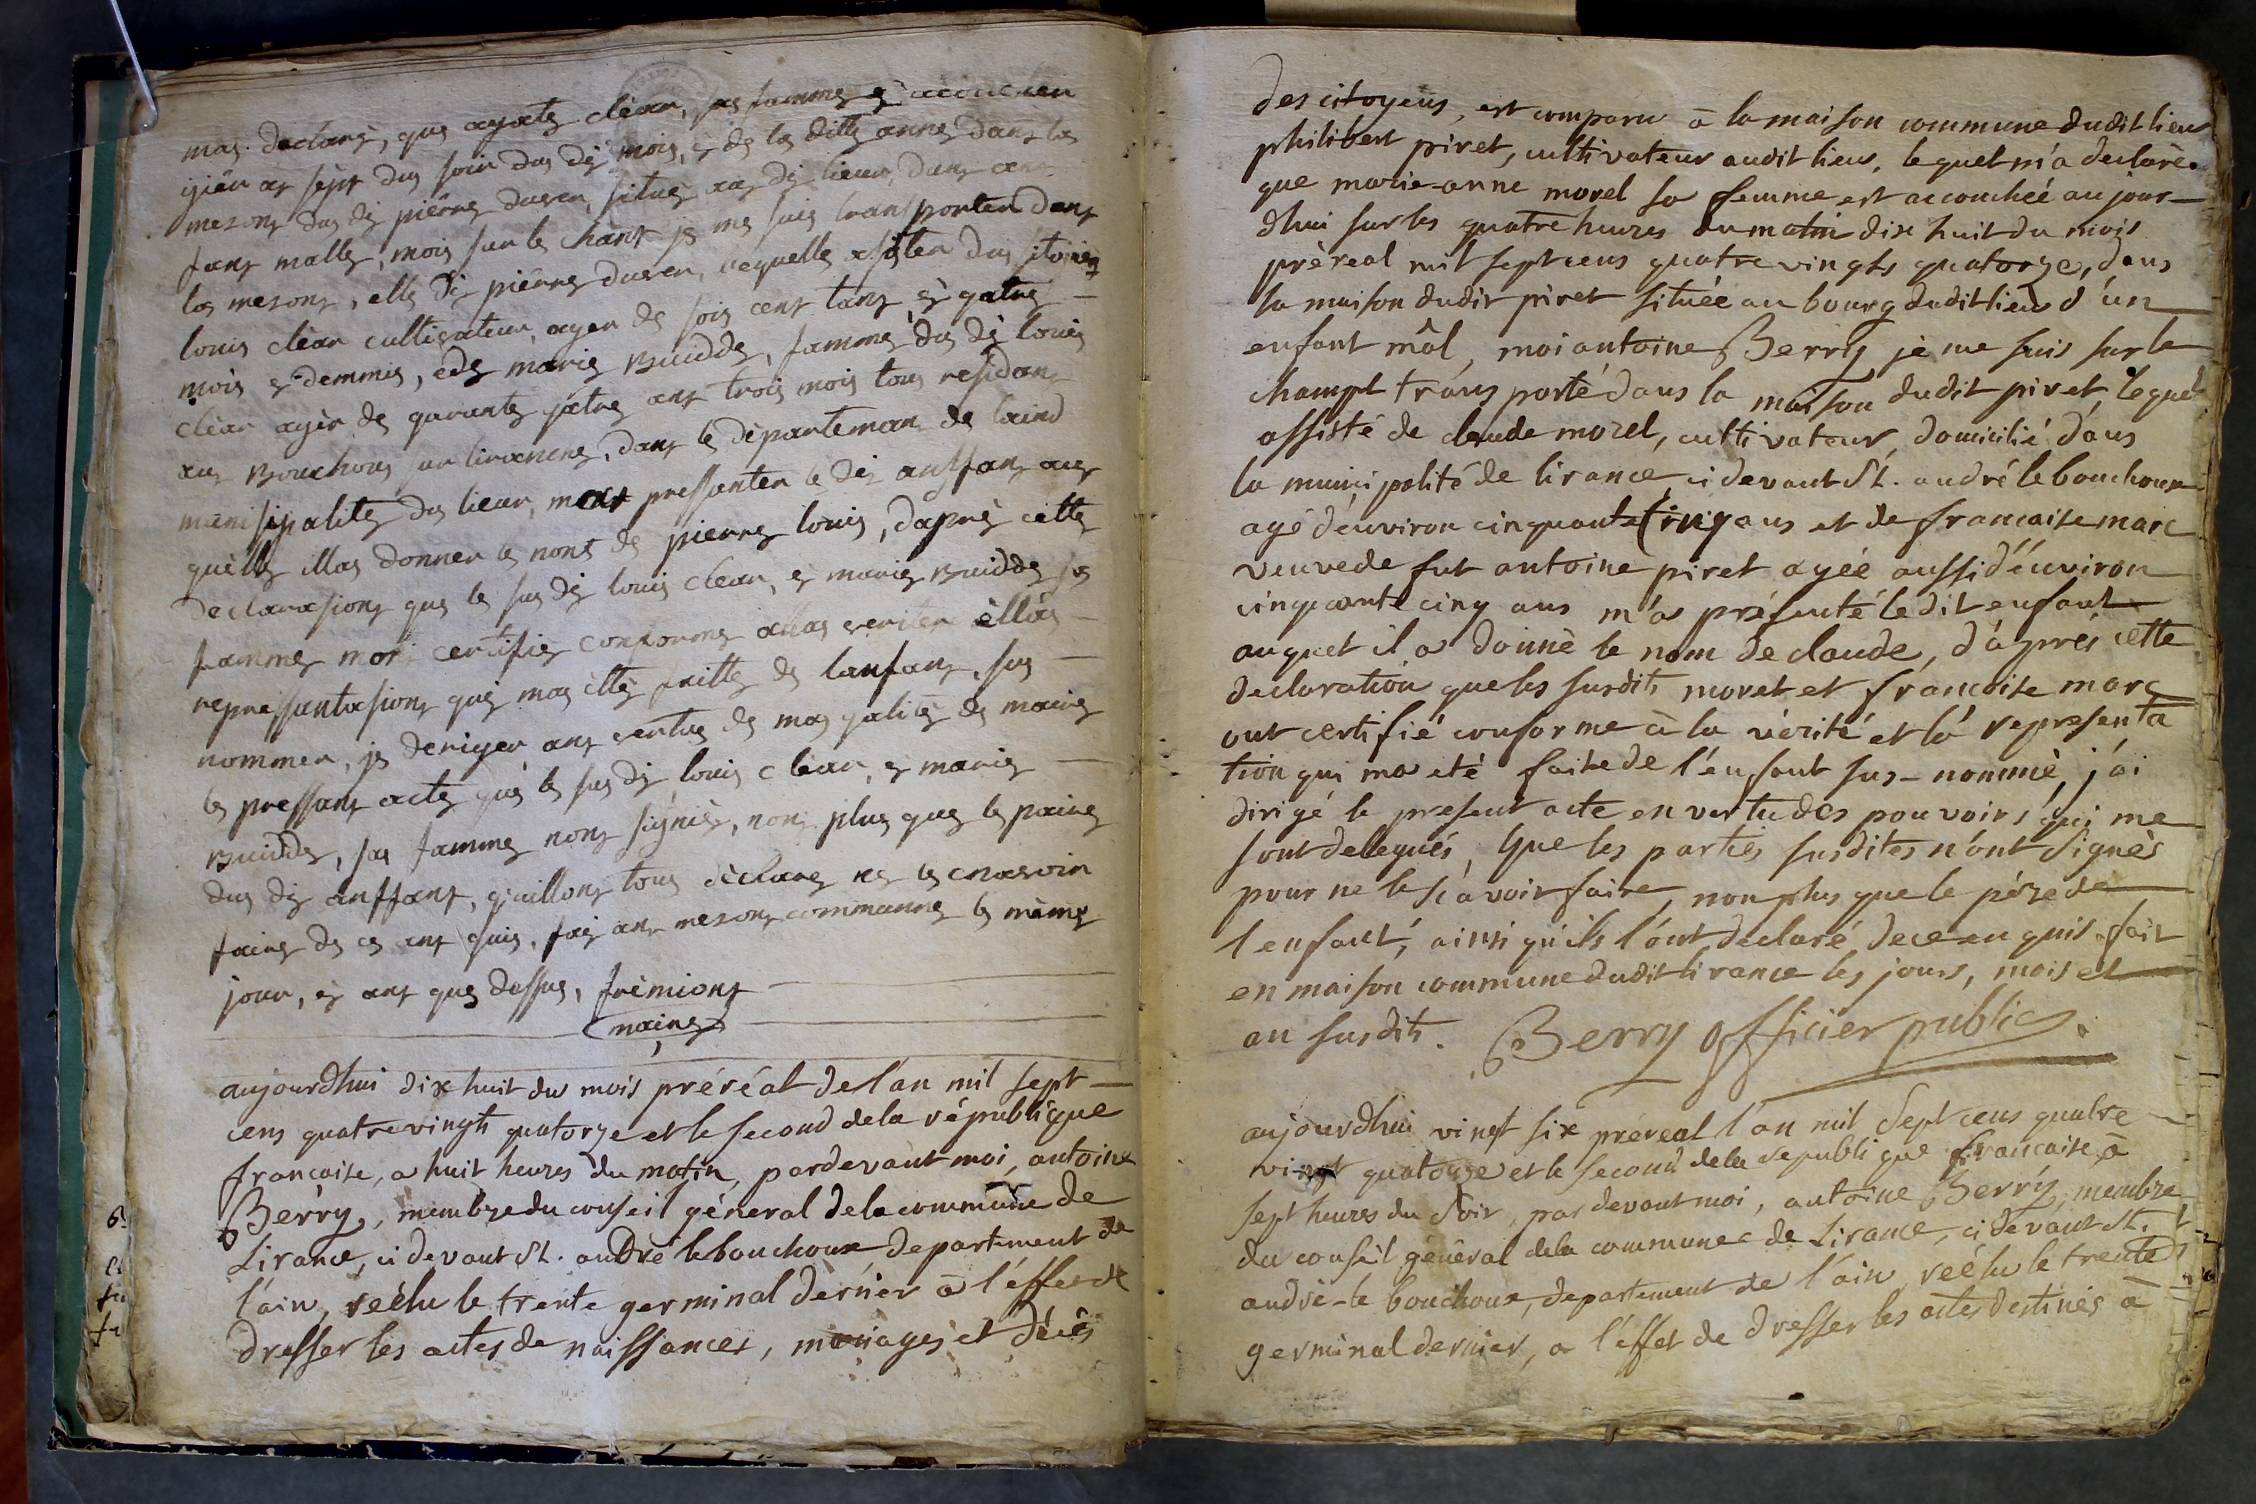 mas declarè, que agate clèar, sas famme è acouchéu
ijièn as sèpt dus soir dus di mois, è de las ditte anne dans las
mesons dus di piêrre duren, situè aus di lieur, dans
fans malle, mois sur le chant je me suis transporter dans
las mesons, elle di piêrre duren, lequelle asister dus sitoien
louis clèar cultivateur, ager de sois cent tans, è qatre
mois è demmis, ède marie Buidde, famme dus di louis
clèar agèr de qurante qatre ans trois mois tous residans
aus Bouchous sur lirance, dans le dèparteman de laind
munisipalite dus lieur, mas pressenter le di anffans aus
quèlle illas donner le nons de pierre louis, daprè cette
declarasions que le sus di louis clear, è marie Buidde sas
famme mons certifie conforme allas veriter èllas
repressantasions qui mas ètte faitte de lanfans, sus
nommer, je deriger ans vertus de mas qalite de maire
le pressans acte què le sus di louis clear, è marie
Buidde, sas famme nons signiè, nons plus que le paire
dus di anffans, quillons tous dèclare ne le ravoir
faire de ce ans quis, fai ans mesons commune le même
jour, è ans que dessus, frèmions
maire
aujourdhui dix huit du mois préréal de l'an mil sept
cens quatrevingts quatorze et le second de la république
francaise, a huit heures du matin, pardevant moi, antoine
Berry, membre du conseil géneral de la commune de
Lirance, ci devant St. andré le bouchoux, departement de
l'ain, reélu le trente germinal dernier à l'éffet de
dresser les actes de naissances, mariages et décès
des citoyens, est comparu à la maison commune dudit lieu
philibert piret, cultivateur audit lieu, lequel m'a declarè
que marie-anne morel sa femme est accouchéé aujour-
dhui sur les quatre heures du matin dix huit du mois
prèreal mil sept cens quatre vingts quatorze, dans
la maison dudit piret située au bourg dudit lieu d'un
enfant mâl, moi antoine Berry je me suis sur le
champt transporté dans la maison dudit piret, lequel
assisté de claude morel, cultivateur, domicilié dans
la municipalité de lirance, ci devant St. andré le bouchoux
agé d'environ cinquante cinq ans et de francaise marc
veuve de fut antoine piret agéé aussi d'éuviron
cinquante cinq ans m'a présenté le dit enfant
auquel il a donnè le nom de claude, d'après cette
declaration que les susdits morel et francoise marc
ont certifié conforme à la vérité et la representa
tion qui ma eté faite de l'enfant sus-nommè, j'ai
dirigé le present acte en vertu des pouvoirs qui me
sont delegués, que les parties susdites n'ont signès
pour ne le sçavoir faire, non plus que le père de
l'enfant, ainsi qu'ils l'ont declaré, de ce en quis fait
en maison commune dudit lirance les jours, mois et
an susdits. Berry officier public
aujourdhui vingt six préreal l'an mil sept cens quatre
vingt quatorze et le second de la republique francaise, à
sept heures du soir, par devant moi, antoine Berry, membre
du conseil géneral de la commune de Lirance, ci devant St.
andré-le bouchoux, departement de l'ain, reélu le trente
germinal dernier, a l'effet de dresser les actes destinés à